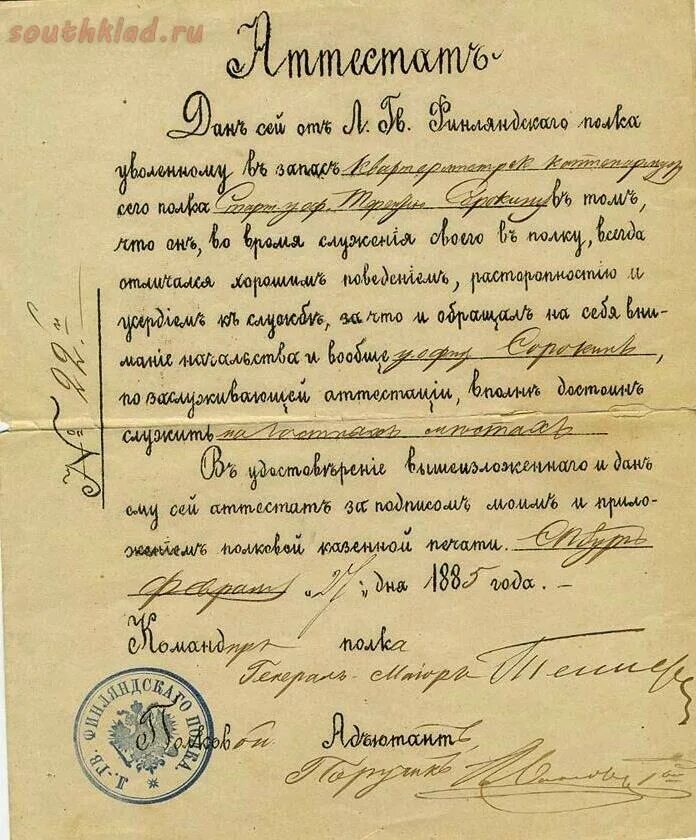 southklad.ru
Аттестатъ
Данъ сей отъ Л. Гв. Финляндскаго полка
уволенному въ запасъ
сего полка Сорокину въ томъ,
что онъ, во время служенія своего въ полку, всегда
отличался хорошимъ поведеніемъ, расторопностію и
усердіемъ къ службѣ, за что и обращалъ на себя вни-
маніе начальства и вообще Сорокинъ,
по заслуживающей аттестаціи, вполнѣ достоинъ
служить на мѣстахъ
Въ удостовѣреніе вышеизложеннаго и данъ
ему сей аттестатъ за подписомъ моимъ и прило-
женіемъ полковой казенной печати.
"27" дня 1885 года. –
Командиръ полка
Генералъ-Маіоръ
Полковой Адъютантъ,
Поручикъ
№ 22.й
Л.-ГВ. ФИНЛЯНДСКАГО ПОЛКА.